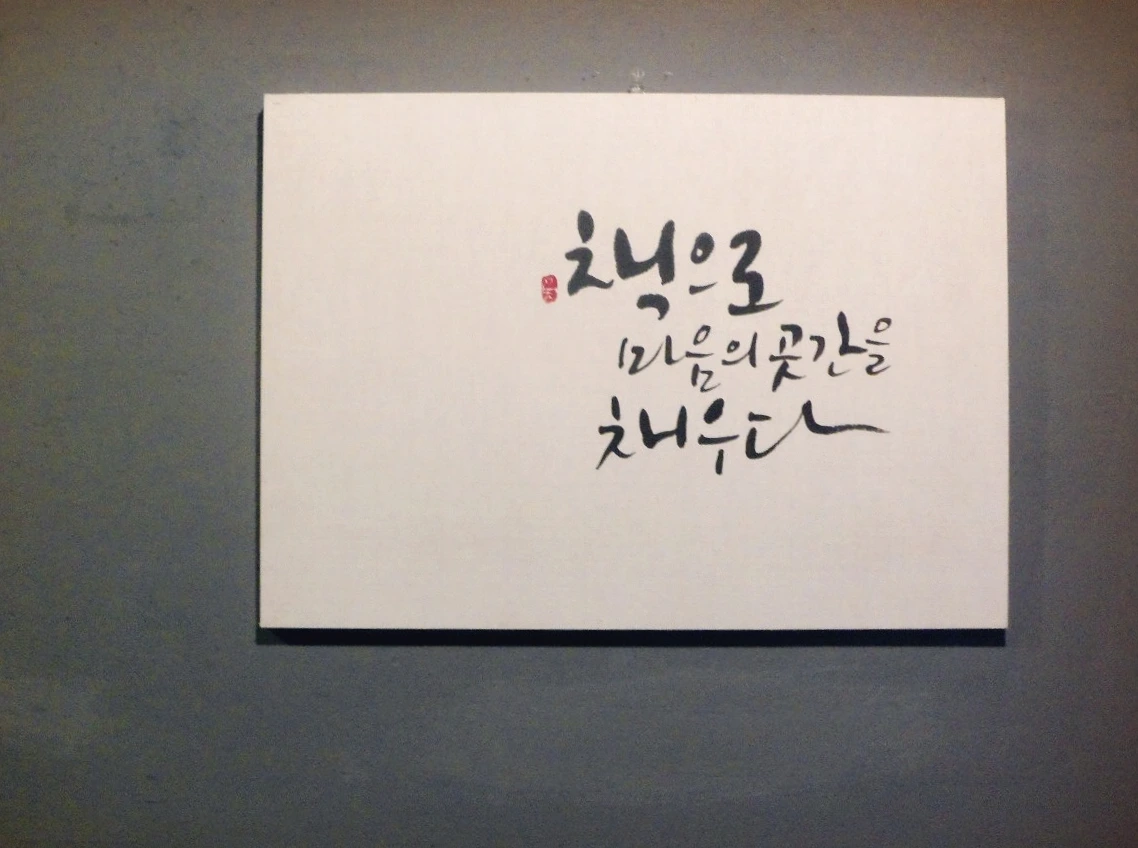 책으로
마음의 곳간을
채우다